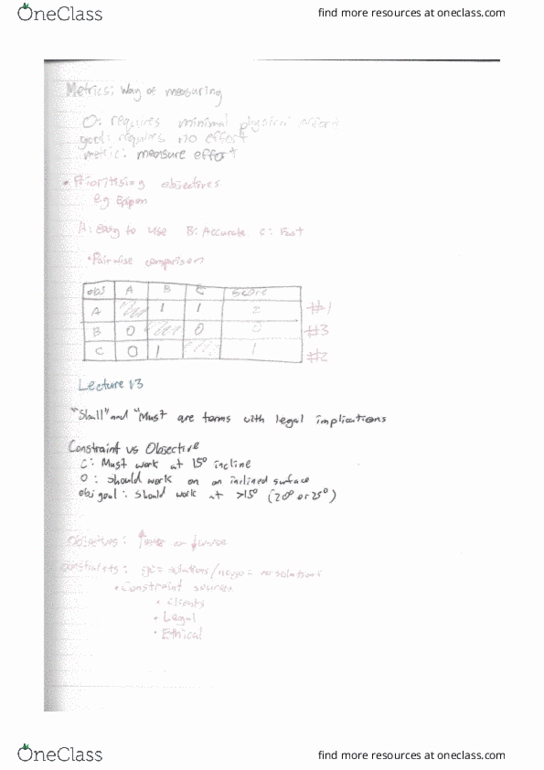 OneClass
find more resources at oneclass.com
Metrics: Way of measuring
O: requires minimal physical effort
goal: requires NO effort
metric: measure effort
• Prioritising objectives
eg Epipen
A: Easy to use B: Accurate C: Fast
• Pairwise comparison
obj A B C Score
A 1 1 2 #1
B 0 0 0 #3
C 0 1 1 #2
Lecture 13
"Shall" and "Must are terms with legal implications
Constraint vs Objective
C: Must work at 15° incline
O: should work on an inclined surface
obj goal: should work at >15° (20° or 25°)
Objectives: ↑ or ↓
constraints: solutions / no solutions
• Constraint sources
• Clients
• Legal
• Ethical
OneClass
find more resources at oneclass.com